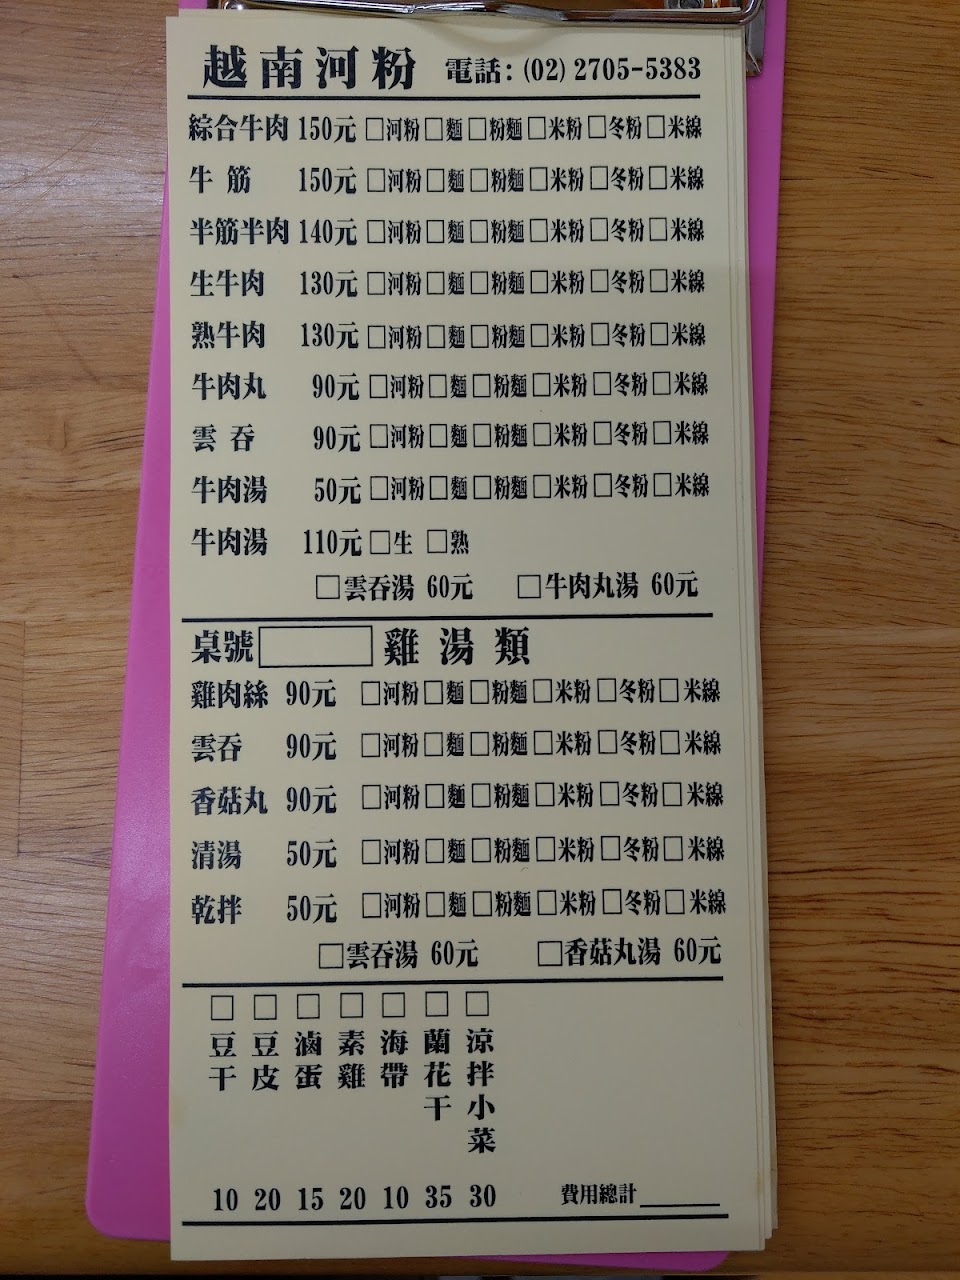 越南河粉 電話:(02)2705-5383
綜合牛肉 150元 □河粉□麵□粉麵□米粉□冬粉□米線
牛筋 150元 □河粉□麵□粉麵□米粉□冬粉□米線
半筋半肉 140元 □河粉□麵□粉麵□米粉□冬粉□米線
生牛肉 130元 □河粉□麵□粉麵□米粉□冬粉□米線
熟牛肉 130元 □河粉□麵□粉麵□米粉□冬粉□米線
牛肉丸 90元 □河粉□麵□粉麵□米粉□冬粉□米線
雲吞 90元 □河粉□麵□粉麵□米粉□冬粉□米線
牛肉湯 50元 □河粉□麵□粉麵□米粉□冬粉□米線
牛肉湯 110元 □生 □熟
□雲吞湯 60元 □牛肉丸湯 60元
桌號 雞湯類
雞肉絲 90元 □河粉□麵□粉麵□米粉□冬粉□米線
雲吞 90元 □河粉□麵□粉麵□米粉□冬粉□米線
香菇丸 90元 □河粉□麵□粉麵□米粉□冬粉□米線
清湯 50元 □河粉□麵□粉麵□米粉□冬粉□米線
乾拌 50元 □河粉□麵□粉麵□米粉□冬粉□米線
□雲吞湯 60元 □香菇丸湯 60元
□豆干 10
□豆皮 20
□滷蛋 15
□素雞 20
□海帶 10
□蘭花干 35
□涼拌小菜 30
費用總計______